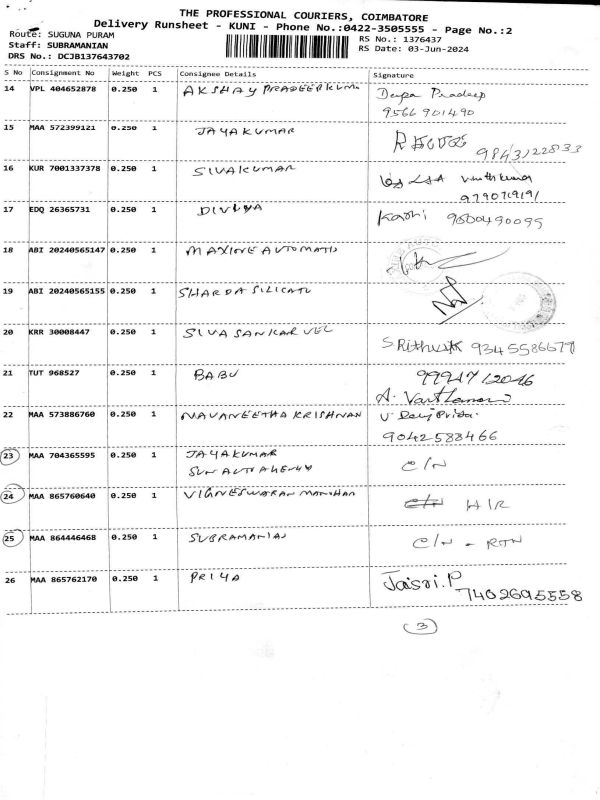 THE PROFESSIONAL COURIERS, COIMBATORE
Delivery Runsheet - KUNI - Phone No.:0422-3505555 - Page No.:2
Route: SUGUNA PURAM
RS No.: 1376437
Staff: SUBRAMANIAN
RS Date: 03-Jun-2024
DRS No.: DCJB137643702
S No Consignment No Weight PCS Consignee Details Signature
14 VPL 404652878 0.250 1 AKSHAY PRADEEPKUMA Deepa Pradeep
9566 901490
15 MAA 572399121 0.250 1 JAYAKUMAR 9843122833
16 KUR 7001337378 0.250 1 SIVAKUMAR
17 EDQ 26365731 0.250 1 DIVIYA 9600490099
18 ABI 20240565147 0.250 1 MAXIONE AUTOMATIO
19 ABI 20240565155 0.250 1 SHARDA SILICATE
20 KRR 30008447 0.250 1 SIVASANKARVEL SRithvik 9345586677
21 TUT 968527 0.250 1 BABU
22 MAA 573886760 0.250 1 NAVANEETHA KRISHNAN
9042588466
23 MAA 704365595 0.250 1 JAYAKUMAR C/N
SUN AUTO AGENCY
24 MAA 865760640 0.250 1 VIGNESWARAN MANOHAR C/N H/R
25 MAA 864446468 0.250 1 SUBRAMANIAN C/N - RTN
26 MAA 865762170 0.250 1 PRIYA Jaisri.P
7402695558
3